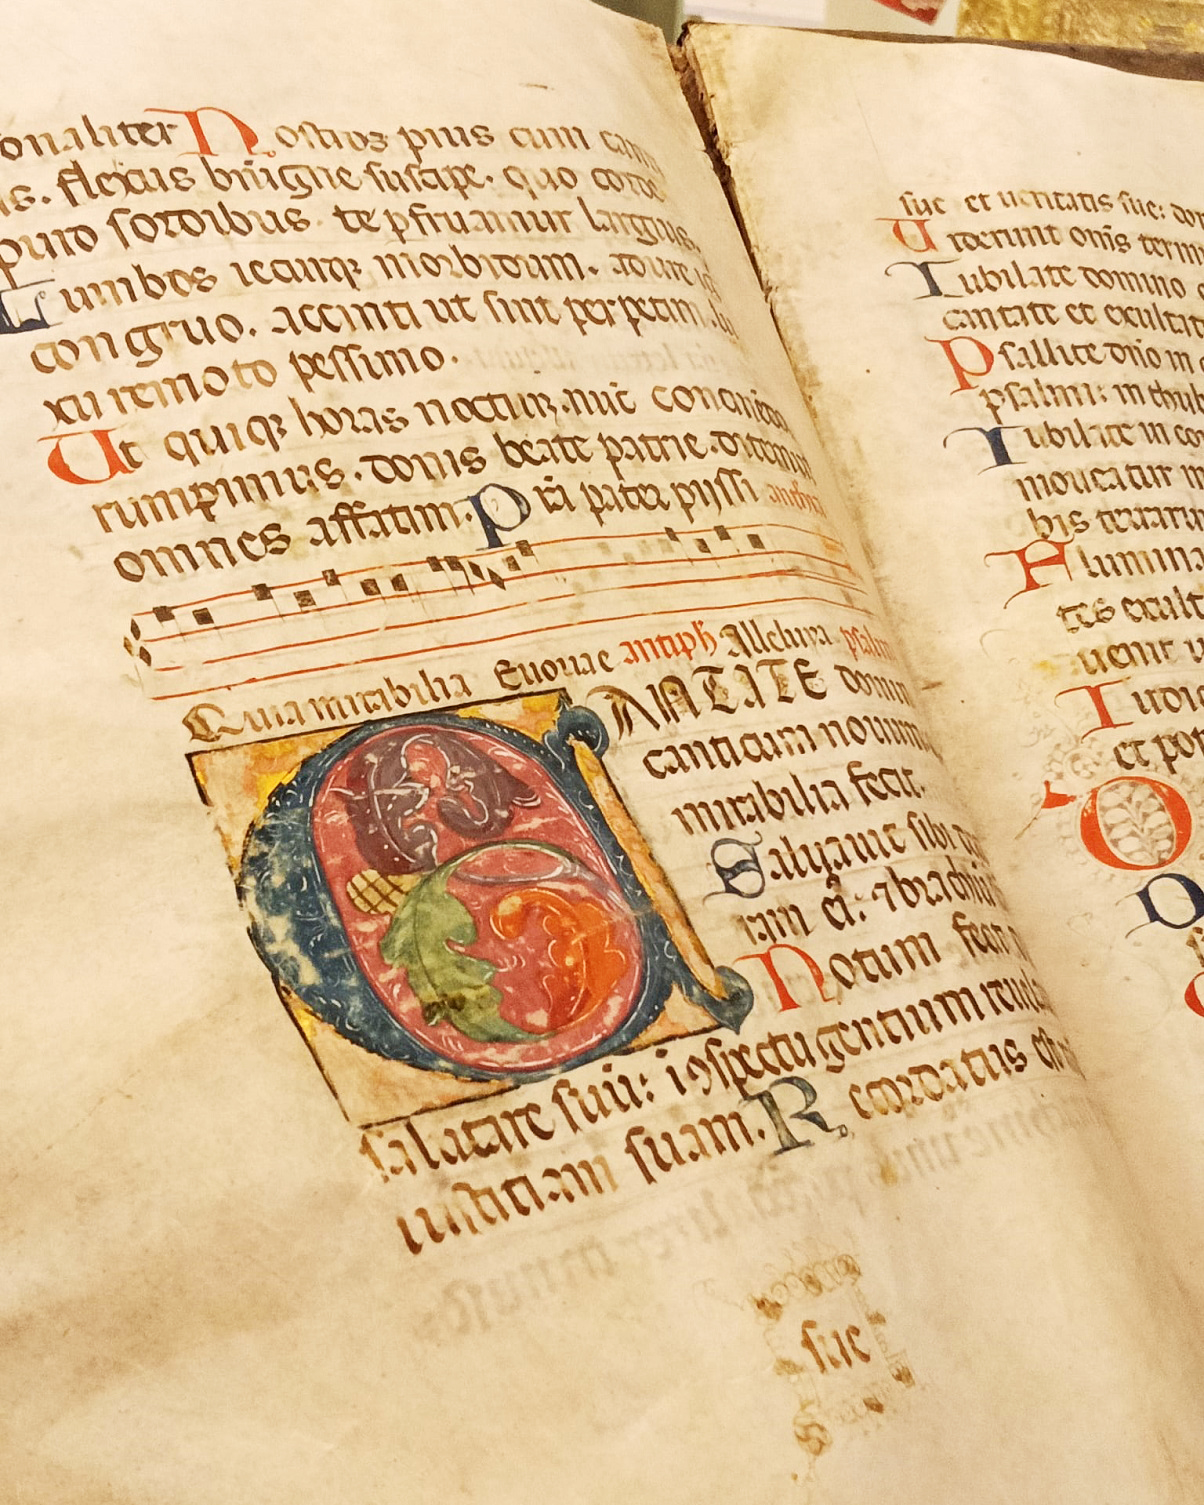 onaliter Nostros pius cum can
is. flexus benigne suscipe. quo corde
puro sordibus. te pfruamur largius.
Lumbos iecurq morbidum. adure ig
congruo. accincti ut sint perpetim. lu
xu remoto pessimo.
Ut quiq horas noctiu. nuc concinedo
rumpimus. donis beate patrie. ditemur
omnes affatim. Psta pater pijssi
Quia mirabilia Euouae antiph Alleluya psalm
CANTATE domin
canticum novum
mirabilia fecit.
Saluauit sibi
iam ei: 7 brachiu
Notum fecit
salutare suu: i ꝯspectu gentium reuela
iustitiam suam. Recordatus est
sue
sue et ueritatis sue:
Uiderunt oms termi
Iubilate domino
cantate et exultat
Psallite dno in
psalmi: in thub
Iubilate in con
moueatur m
bis terraru
Flumina
tes exult
uenit
Iudi
et pop